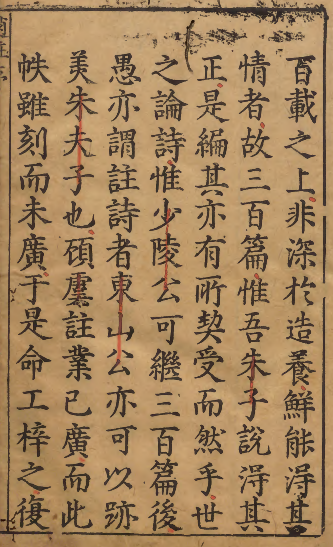 百載之上非深於造養鮮能淂其
情者故三百篇惟吾朱子說淂其
正是編其亦有所契受而然乎世
之論詩惟少陵公可繼三百篇後
愚亦謂註詩者東山公亦可以跡
美朱夫子也碩羣註業已廣而此
帙雖刻而未廣于是命工梓之復